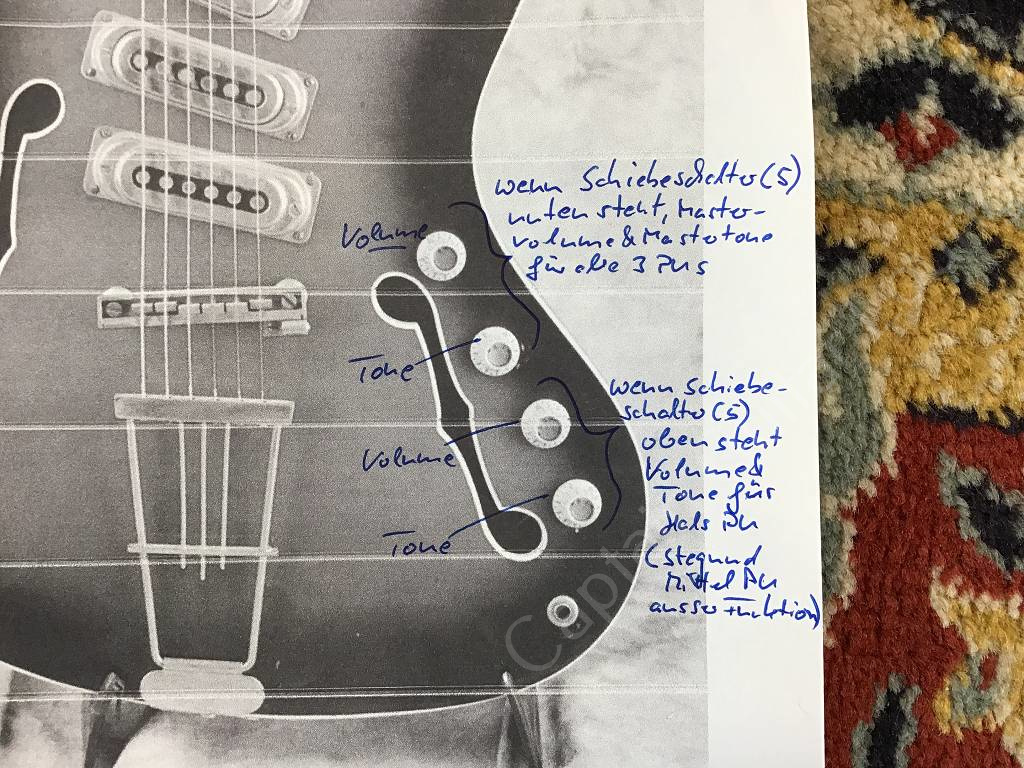 wenn Schiebeschalter (5)
unten steht, Master-
volume & Mastertone
für alle 3 PUs
Volume
Tone
wenn Schiebe-
schalter (5)
oben steht
Volume &
Tone für
Hals PU
(Steg und
Mittel PU
ausser Funktion)
Volume
Tone
Capt